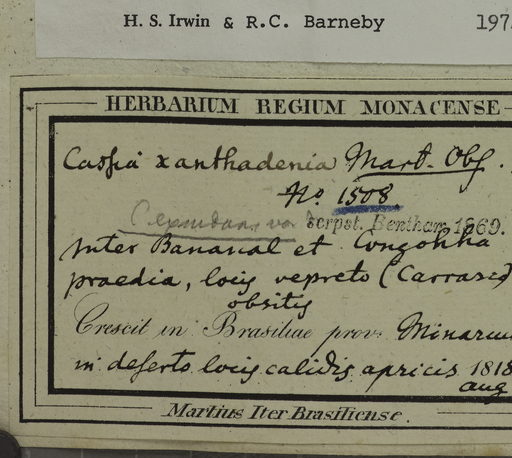 H. S. Irwin & R.C. Barneby 197
HERBARIUM REGIUM MONACENSE
Cassia xanthadenia Mart. Obs.
No. 1508
scrpst. Bentham 1869.
Inter Bananal et Congonha
praedia, locis vepreto (Carrasco)
obsitis
Crescit in Brasiliae prov. Minarum
in deserto locis calidis apricis 1818
aug
Martius Iter Brasiliense.